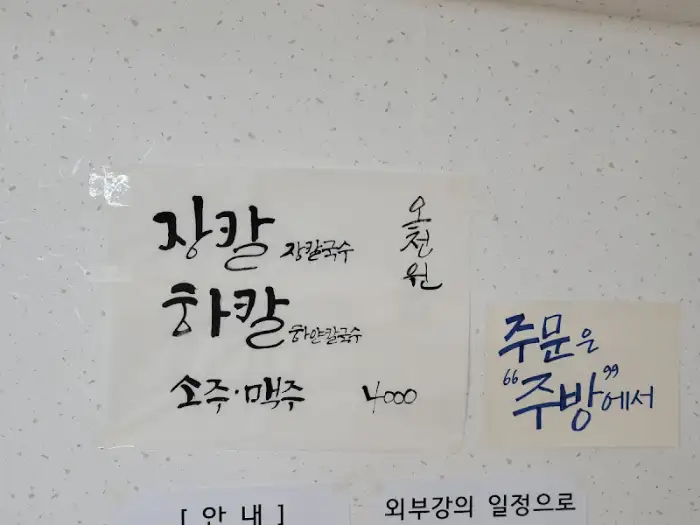 장칼 장칼국수
오천원
하칼 하얀칼국수
소주·맥주 4000
주문은
"주방"에서
[ 안 내 ]
외부강의 일정으로